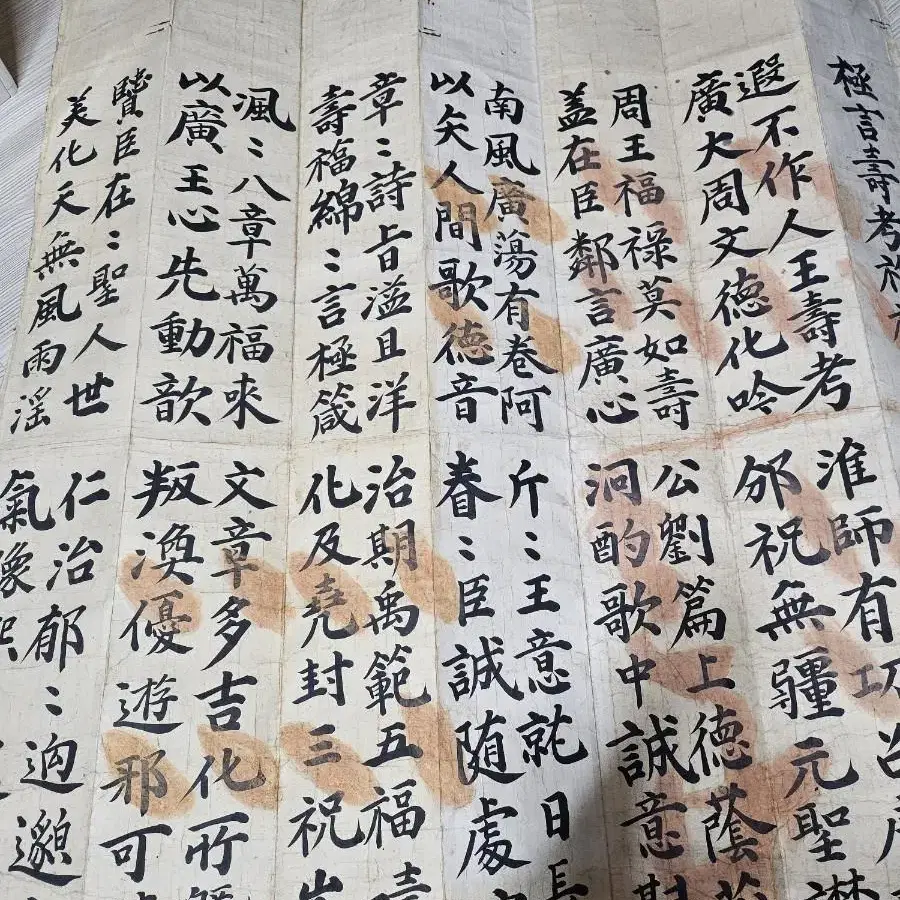 極言壽考於
遐不作人王壽考
廣大周文德化吟
周王福祿莫如壽
盖在臣鄰言廣心
南風廣蕩有卷阿
以矢人間歌德音
章〻詩旨溢且洋
壽福綿〻言極箴
渢〻八章萬福来
以廣王心先動歆
賢臣在〻聖人世
美化天無風雨淫
淮師有功召
邠祝無疆元聖
公劉篇上德蔭
泂酌歌中誠意
斤〻王意就日長
眷〻臣誠随處
治期禹範五福
化及堯封三祝
文章多吉化所
叛渙優遊邪可
仁治郁〻迩邈
氣像熙